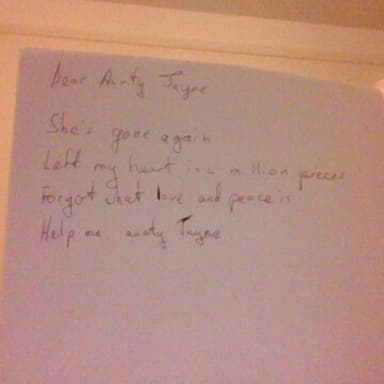 Dear Aunty Jayne
She's gone again
Left my heart in a million pieces
Forgot what love and peace is
Help me aunty Jayne